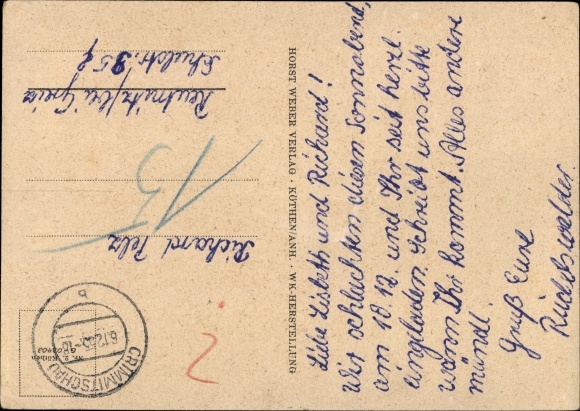 Liebe Lisbeth und Richard!
Wir schlachten diesen Sonnabend,
am 10.12. und Ihr seit herzl.
eingeladen. Schreibt uns bitte
wann Ihr kommt. Alles andere
mündl.
Gruß Eure
Rückitswalder
HORST WEBER VERLAG · KÖTHEN/ANH. · WK-HERSTELLUNG
Richard Pelz
15
Reudnitz/bei Greiz
Schulstr. 95f
2
CRIMMITSCHAU
b